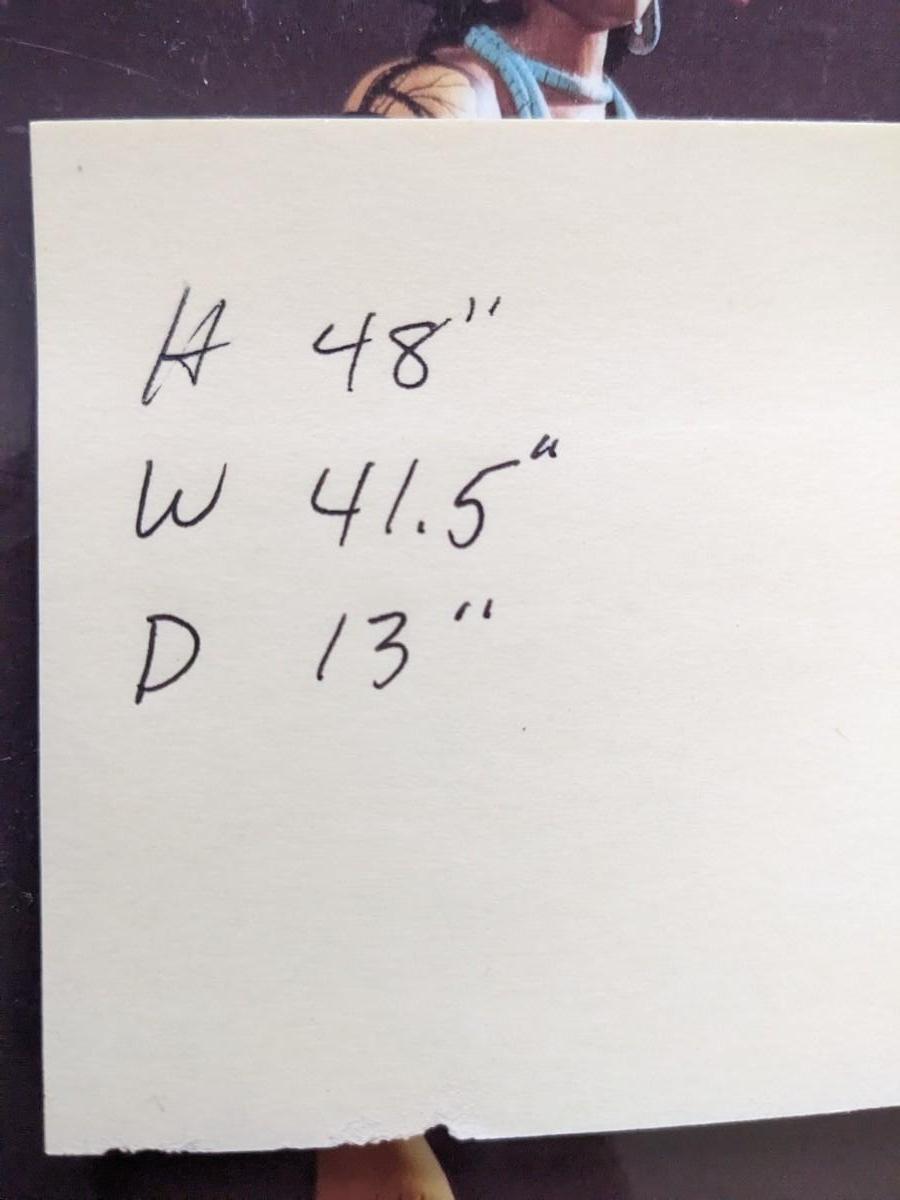 H 48"
W 41.5"
D 13"